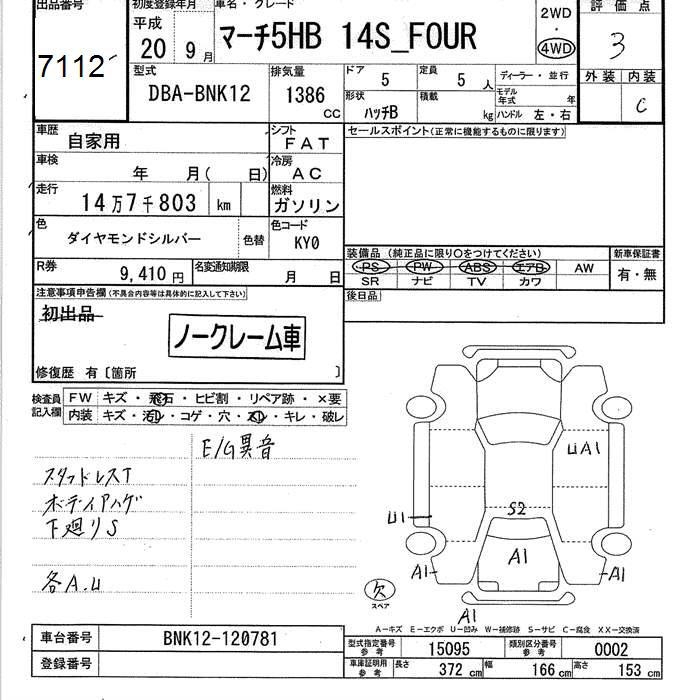 出品番号 7112
初度登録年月 平成 20 9月
車名・グレード マーチ5HB 14S_FOUR
2WD ・ 4WD
評価点 3
外装 内装 C
型式 DBA-BNK12
排気量 1386 CC
ドア 5 定員 5人
形状 ハッチB 積載 kg
ディーラー・並行
モデル年式 年
ハンドル 左・右
車歴 自家用
シフト FAT
セールスポイント(正常に機能するものに限ります)
車検 年 月( 日)
冷房 AC
走行 14万7千803 km
燃料 ガソリン
色 ダイヤモンドシルバー 色替
色コード KY0
装備品(純正品に限り○をつけてください)
PS PW ABS エアB AW
SR ナビ TV カワ
新車保証書 有・無
R券 9,410円
名変通知期限 月 日
後日品
注意事項申告欄(不具合内容等は具体的に記入して下さい)
初出品
ノークレーム車
修復歴 有〔箇所 〕
検査員記入欄
FW キズ・飛石・ヒビ割・リペア跡・×要
内装 キズ・汚レ・コゲ・穴・スレ・キレ・破レ
E/G異音
スタッドレスT
ボディアハゲ
下廻りS
各A.U
UA1
U1
S2
A1
A1
A1
A1
欠
スペア
A-キズ E-エクボ U-凹み W-補修跡 S-サビ C-腐食 XX-交換済
車台番号 BNK12-120781
登録番号
型式指定番号 参考 15095
類別区分番号 参考 0002
車庫証明用 参考 長さ 372 cm 幅 166 cm 高さ 153 cm